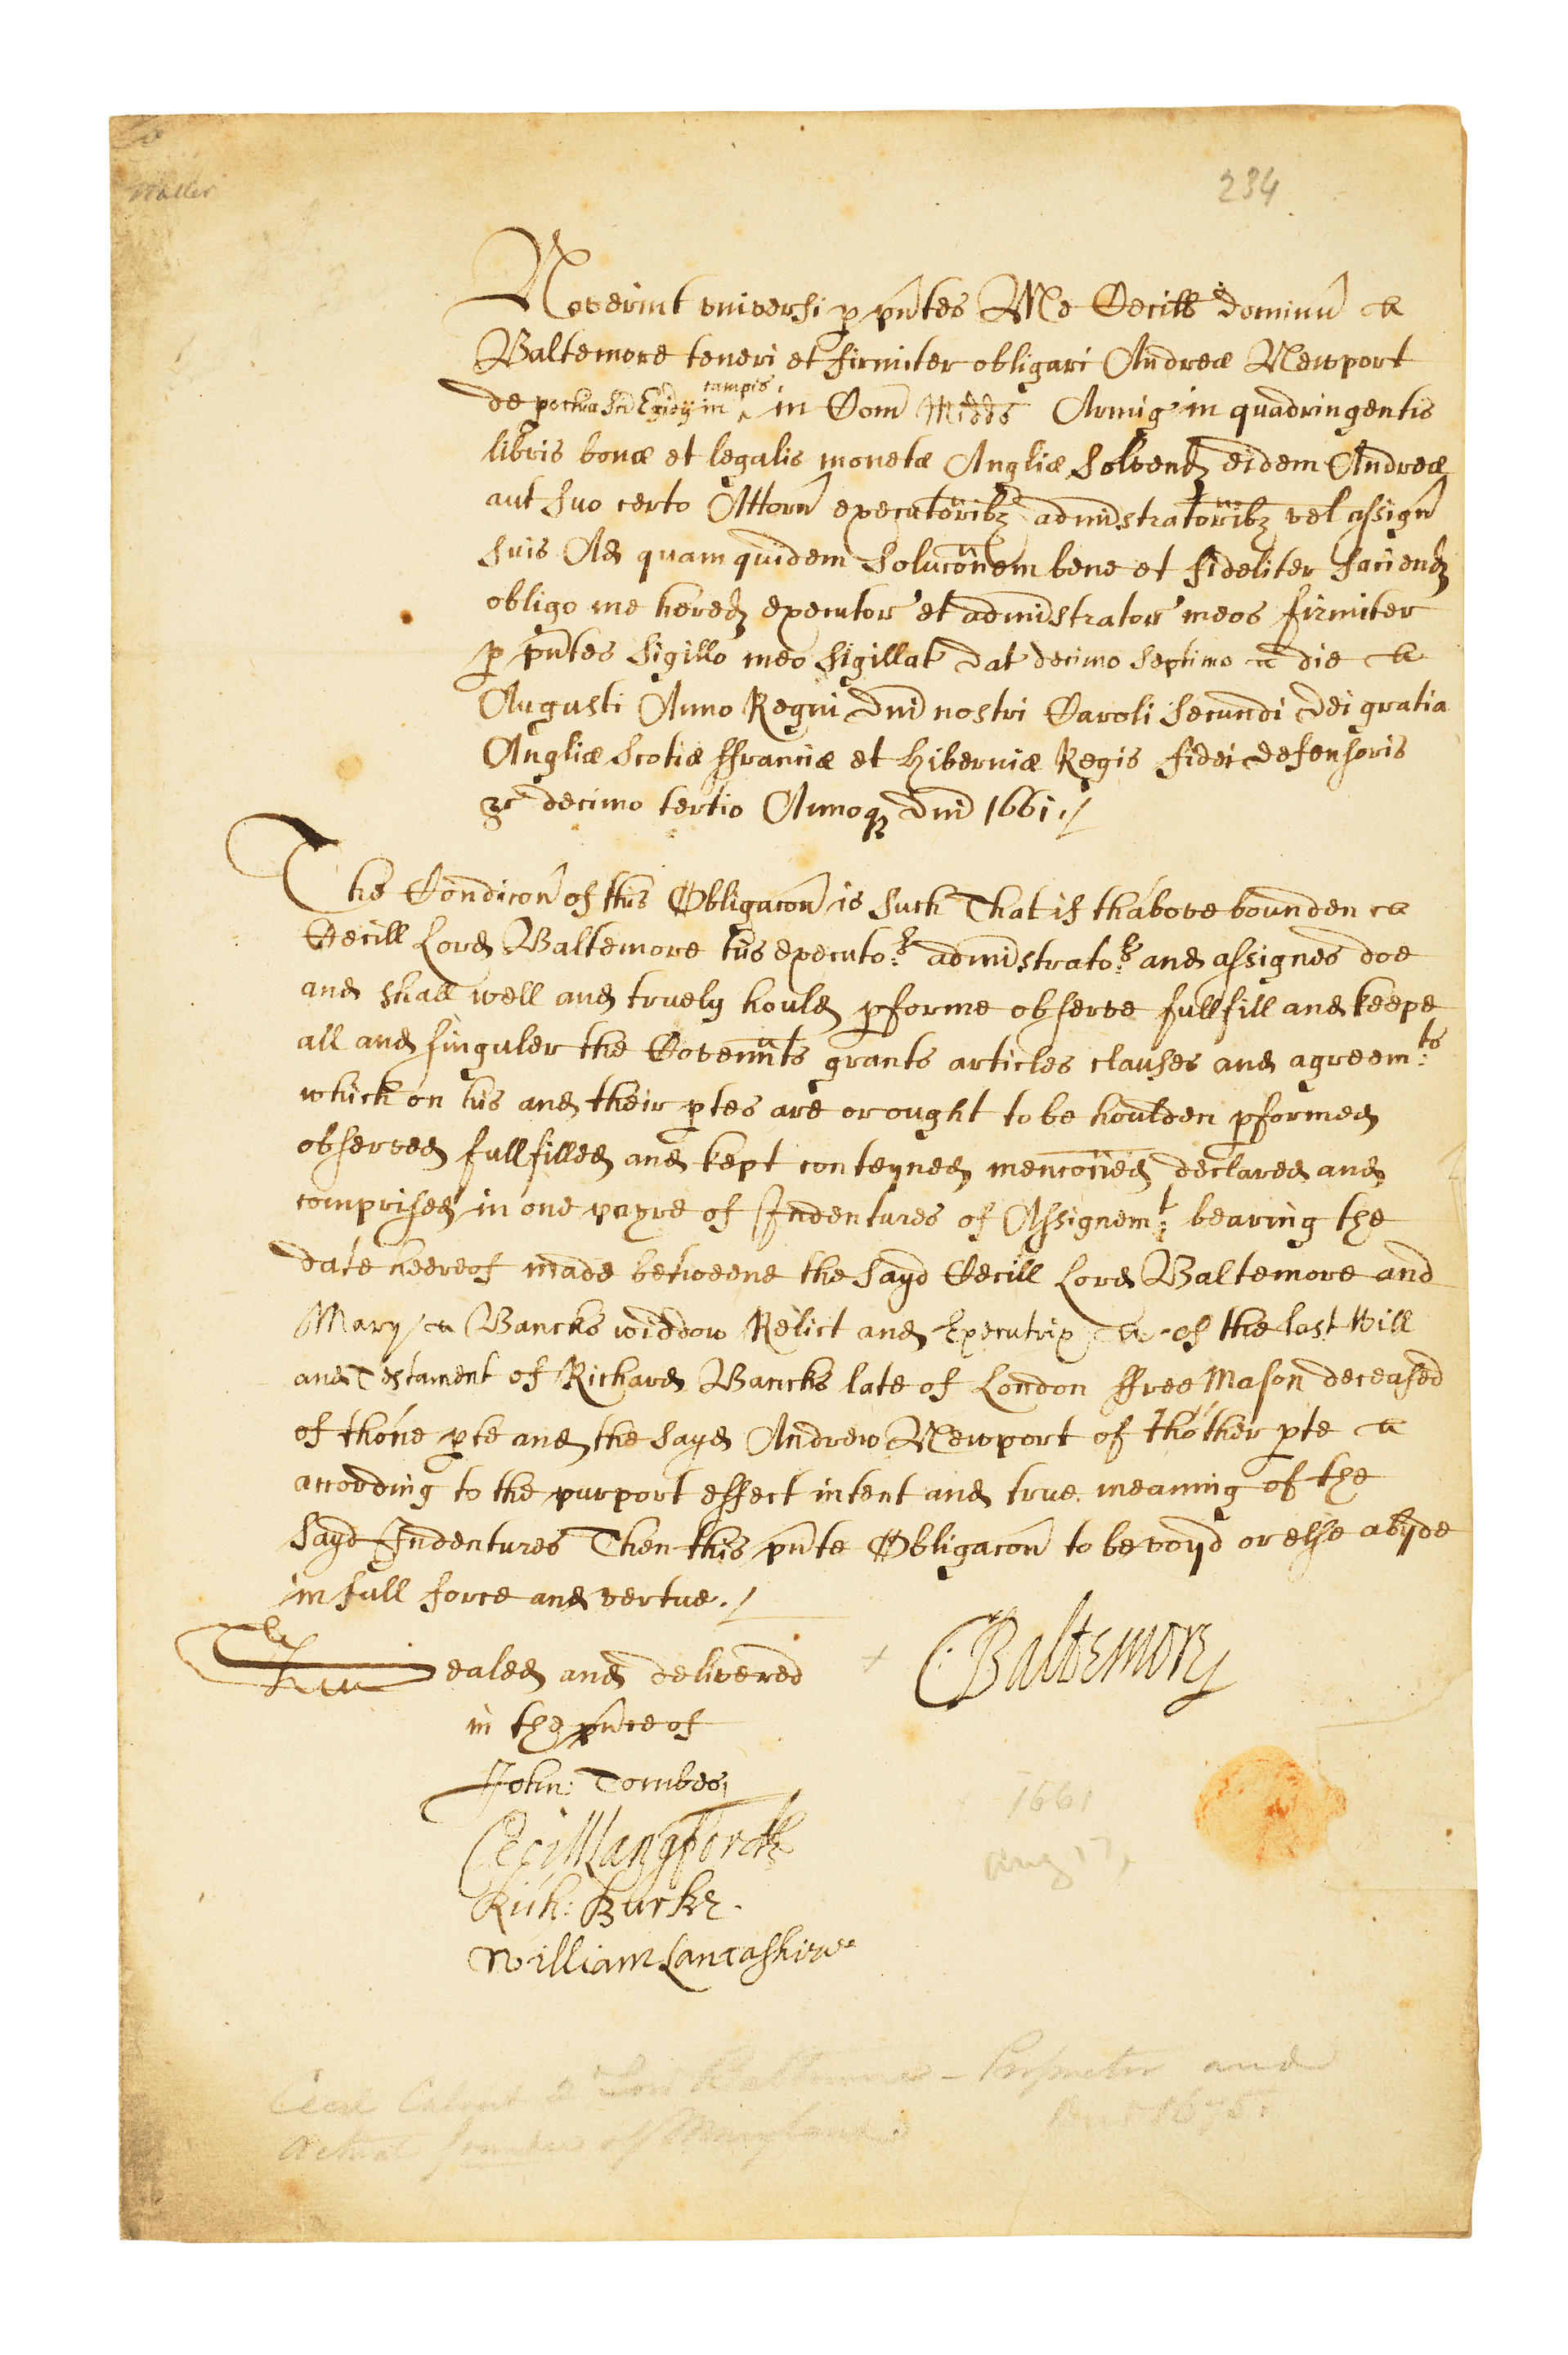 Waller
234
Noverint vniversi p pñtes Me Cecill dominũ
Baltemore teneri et firmiter obligari Andreæ Newport
de pochia Sči Egidij in campis in Com Midds Armig' in quadringentis
libris bonæ et legalis monetæ Angliæ Solvend eidem Andreæ
aut suo certo Attorñ executoribz administratoribz vel assigñ
suis Ad quam quidem soluconem bene et fideliter faciend
obligo me hered executor' et administrator' meos firmiter
p pñtes Sigillo meo Sigillat dat decimo septimo die
Augusti Anno Regni Dni nostri Caroli Secundi Dei gratia
Angliæ Scotiæ ffranciæ et Hiberniæ Regis fidei defensoris
&c decimo tertio Annoqz Dni 1661./
The Condicoñ of this Obligacoñ is such That if th'above bounden
Cecill Lord Baltemore his executo:rs administrato:rs and assignes doe
and shall well and truely hould pforme observe fullfill and keepe
all and singuler the Covennts grants articles clauses and agreem:ts
which on his and their ptes are or ought to be houlden pformed
observed fullfilled and kept conteyned menconed declared and
comprised in one payre of Indentures of Assignem:t bearing the
date heereof made betweene the sayd Cecill Lord Baltemore and
Mary Bancks widdow Relict and Executrix of the last Will
and Testament of Richard Bancks late of London ffree Mason deceased
of th'one pte and the sayd Andrew Newport of th'other pte
according to the purport effect intent and true meaning of the
sayd Indentures Then this pñte Obligacoñ to be voyd or else abyde
in full force and vertue./
Sealed and delivered
in the pñce of
C: Baltemore
John: Tombes
Cecill Langford
Rich: Burke.
William Lancashire
1661
Aug 17,
Cecil Calvert 2d Lord Baltimore - Proprietor and
actual founder of Maryland Died 1675.